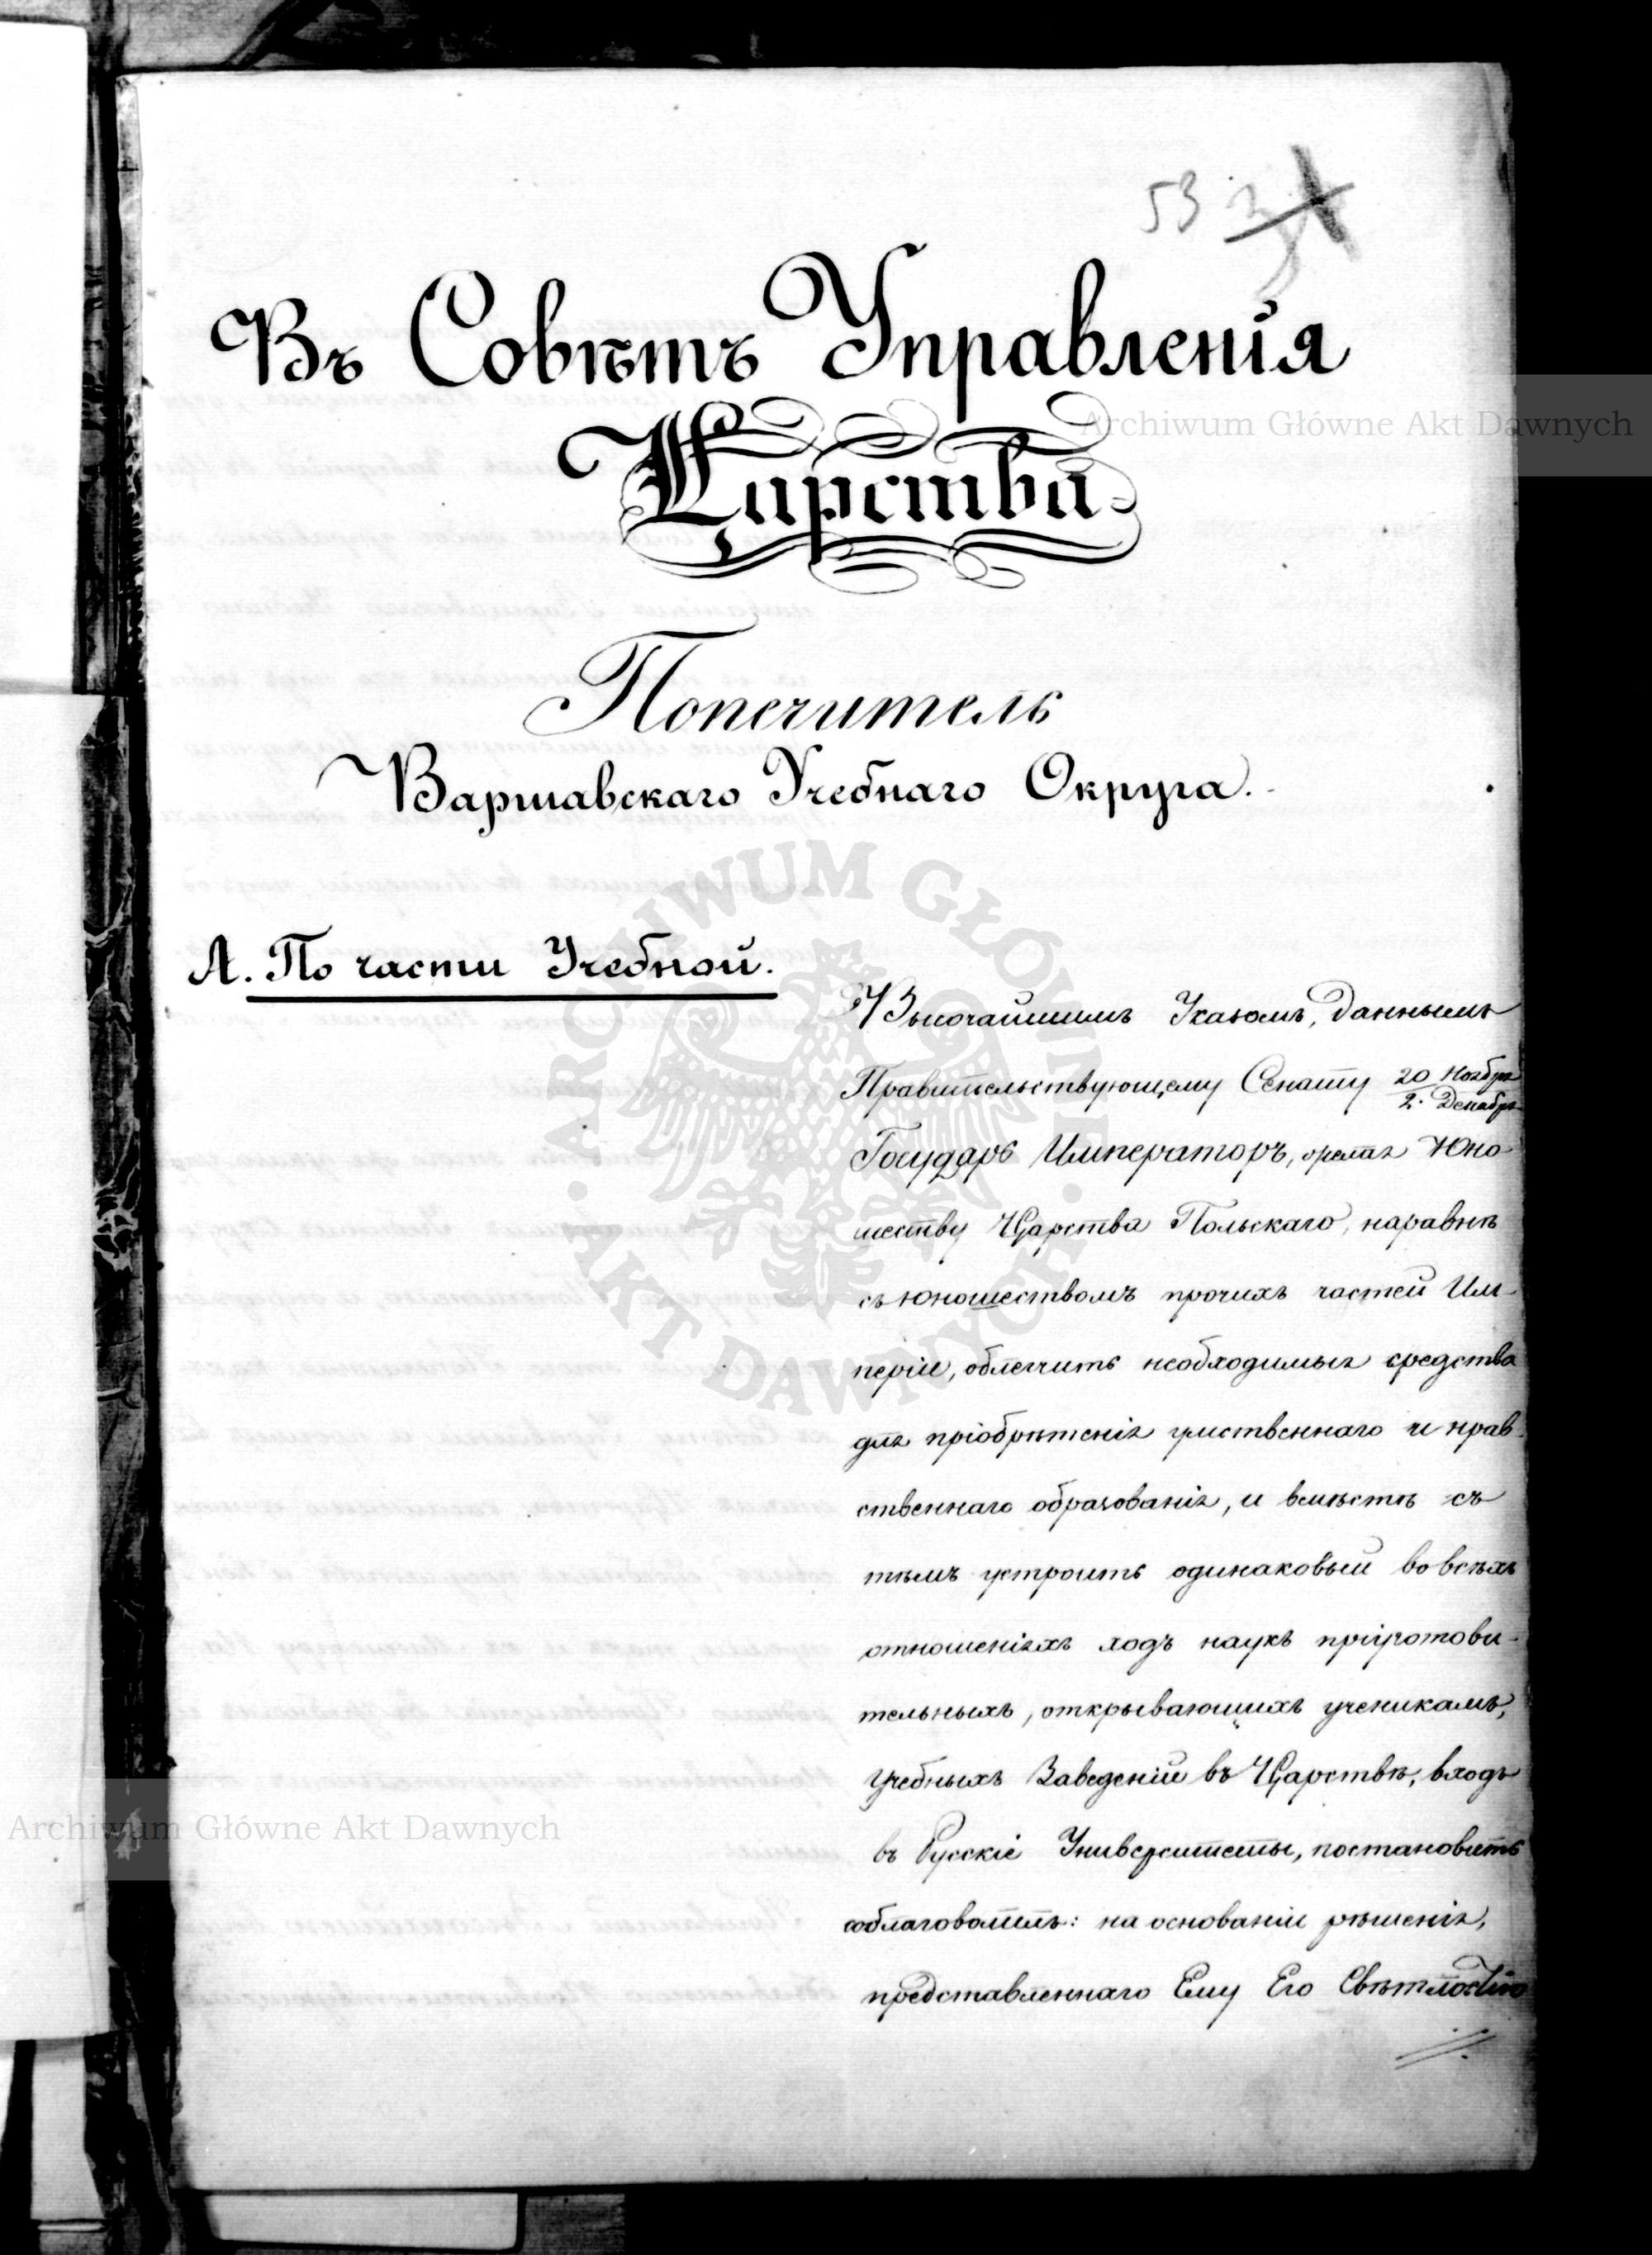 53
Въ Совѣтъ Управленія
Царства.
Попечитель
Варшавскаго Учебнаго Округа.
А. По части Учебной.
Высочайшимъ Указомъ, даннымъ
Правительствующему Сенату 20 Ноября / 2. Декабря
Государь Императоръ, желая Юно-
шеству Царства Польскаго, наравнѣ
съ юношествомъ прочихъ частей Им-
періи, облегчить необходимыя средства
для пріобрѣтенія умственнаго и нрав-
ственнаго образованія, и вмѣстѣ съ
тѣмъ устроить одинаковый во всѣхъ
отношеніяхъ ходъ наукъ пріуготови-
тельныхъ, открывающихъ ученикамъ,
Учебныхъ Заведеній въ Царствѣ, входъ
въ Русскіе Университеты, постановить
соблаговолилъ: на основаніи рѣшенія,
представленнаго Ему Его Свѣтлостію
Archiwum Główne Akt Dawnych
ARCHIWUM GŁÓWNE · AKT DAWNYCH ·
Archiwum Główne Akt Dawnych